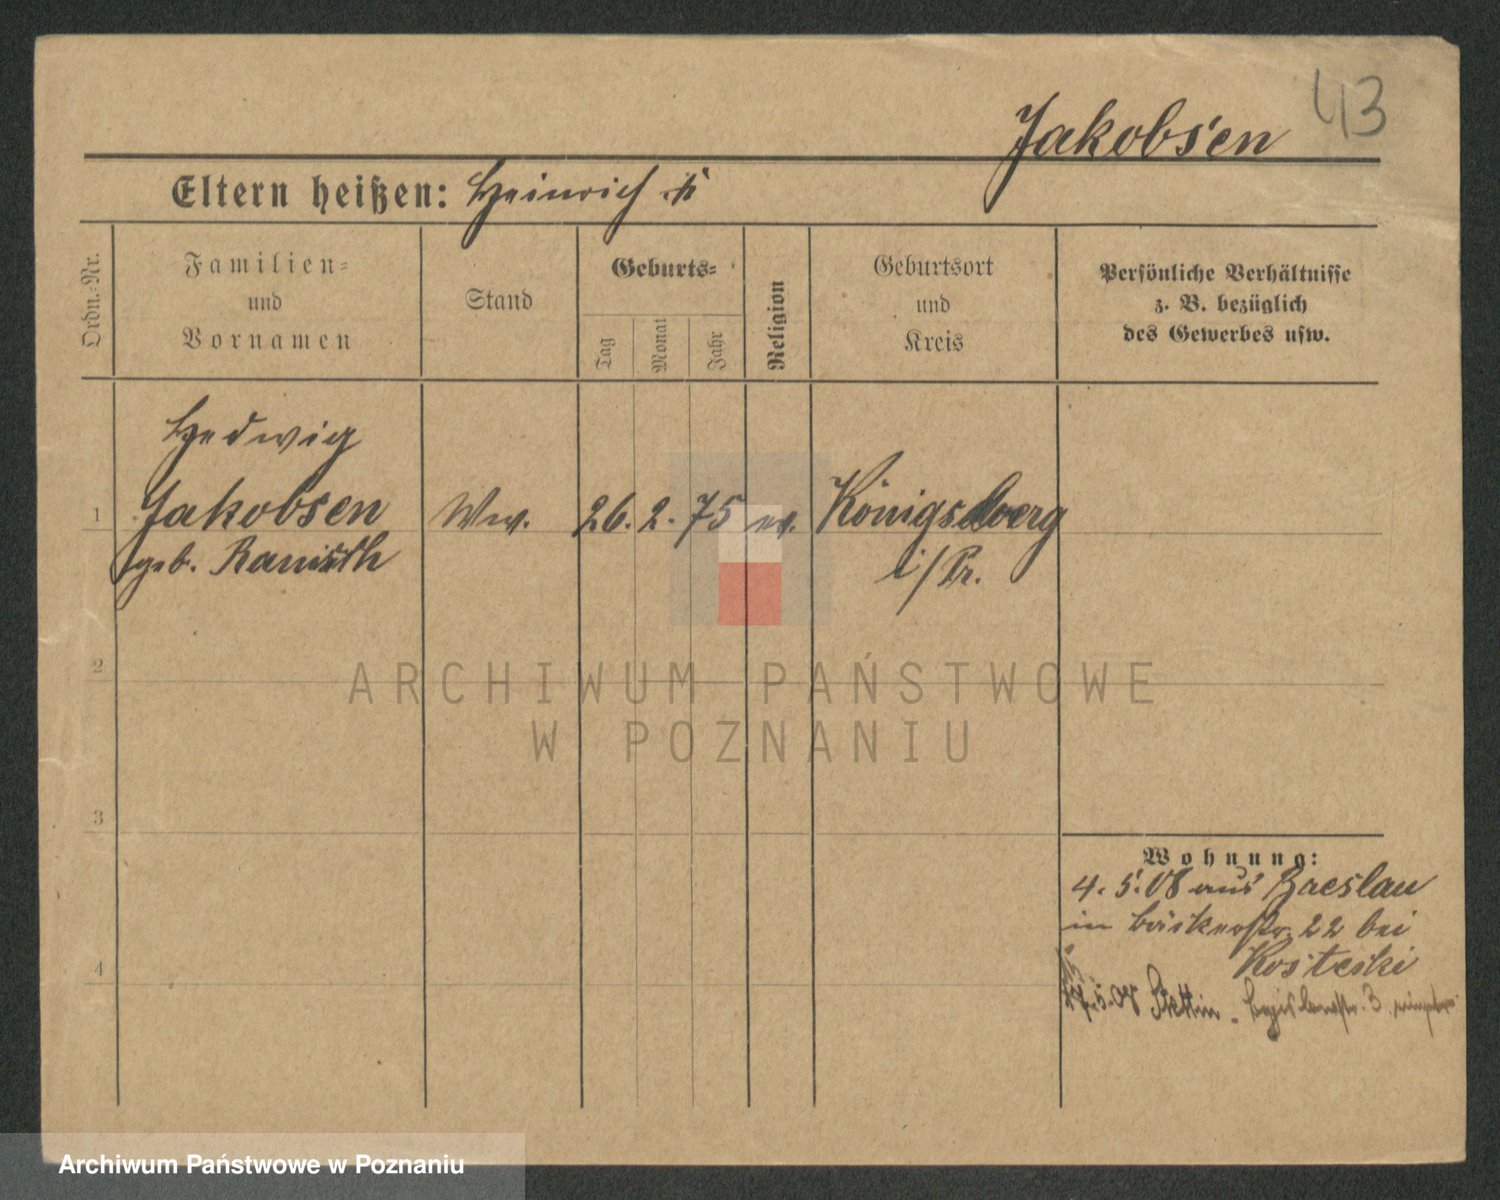 43
Jakobsen
Eltern heißen: Heinrich
Ordn.-Nr.
Familien-
und
Vornamen
Stand
Geburts-
Tag
Monat
Jahr
Religion
Geburtsort
und
Kreis
Persönliche Verhältnisse
z. B. bezüglich
des Gewerbes usw.
Hedwig
1 Jakobsen Ww. 26. 2. 75 ev. Königsberg
geb. i/Pr.
2
ARCHIWUM PAŃSTWOWE
W POZNANIU
3
Wohnung:
4. 5. 08 aus Breslau
in Bäckerstr. 22 bei
Kosteski
4
5. 08 Stettin 3
Archiwum Państwowe w Poznaniu